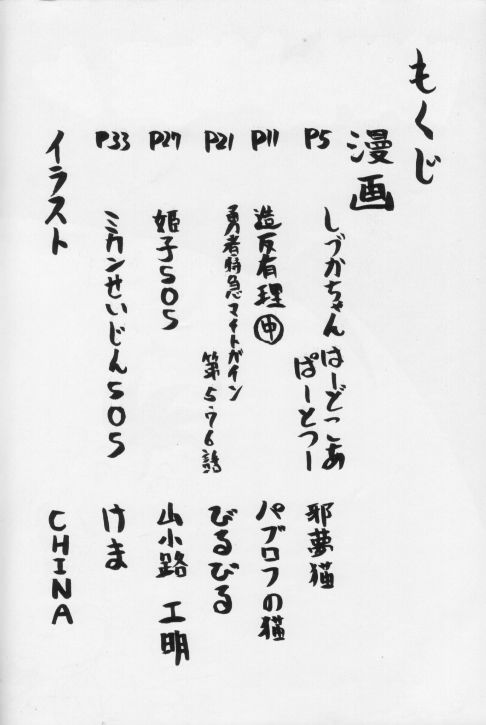 もくじ
漫画
P5 しづかちゃん はーどっこあ ぱーとつー 邪夢猫
P11 造反有理 ㊥ パブロフの猫
P21 勇者特急マイトガイン 第5.76話 びるびる
P27 姫子SOS 山小路 工明
P33 ミカンせいじんSOS けま
イラスト CHINA